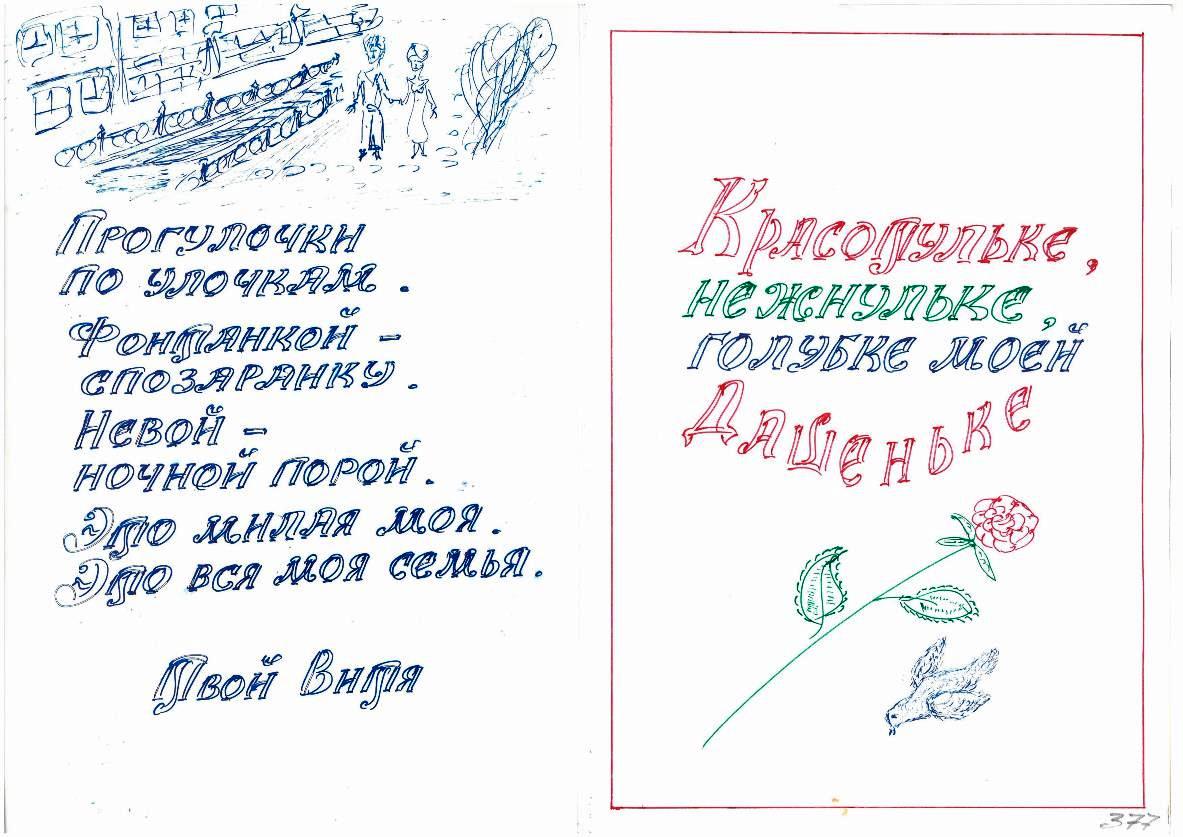 Прогулочки
по улочкам.
Фонтанкой –
спозаранку.
Невой –
ночной порой.
Это милая моя.
Это вся моя семья.
Твой Витя
Красотульке,
нежнульке,
голубке моей
Дашеньке
377